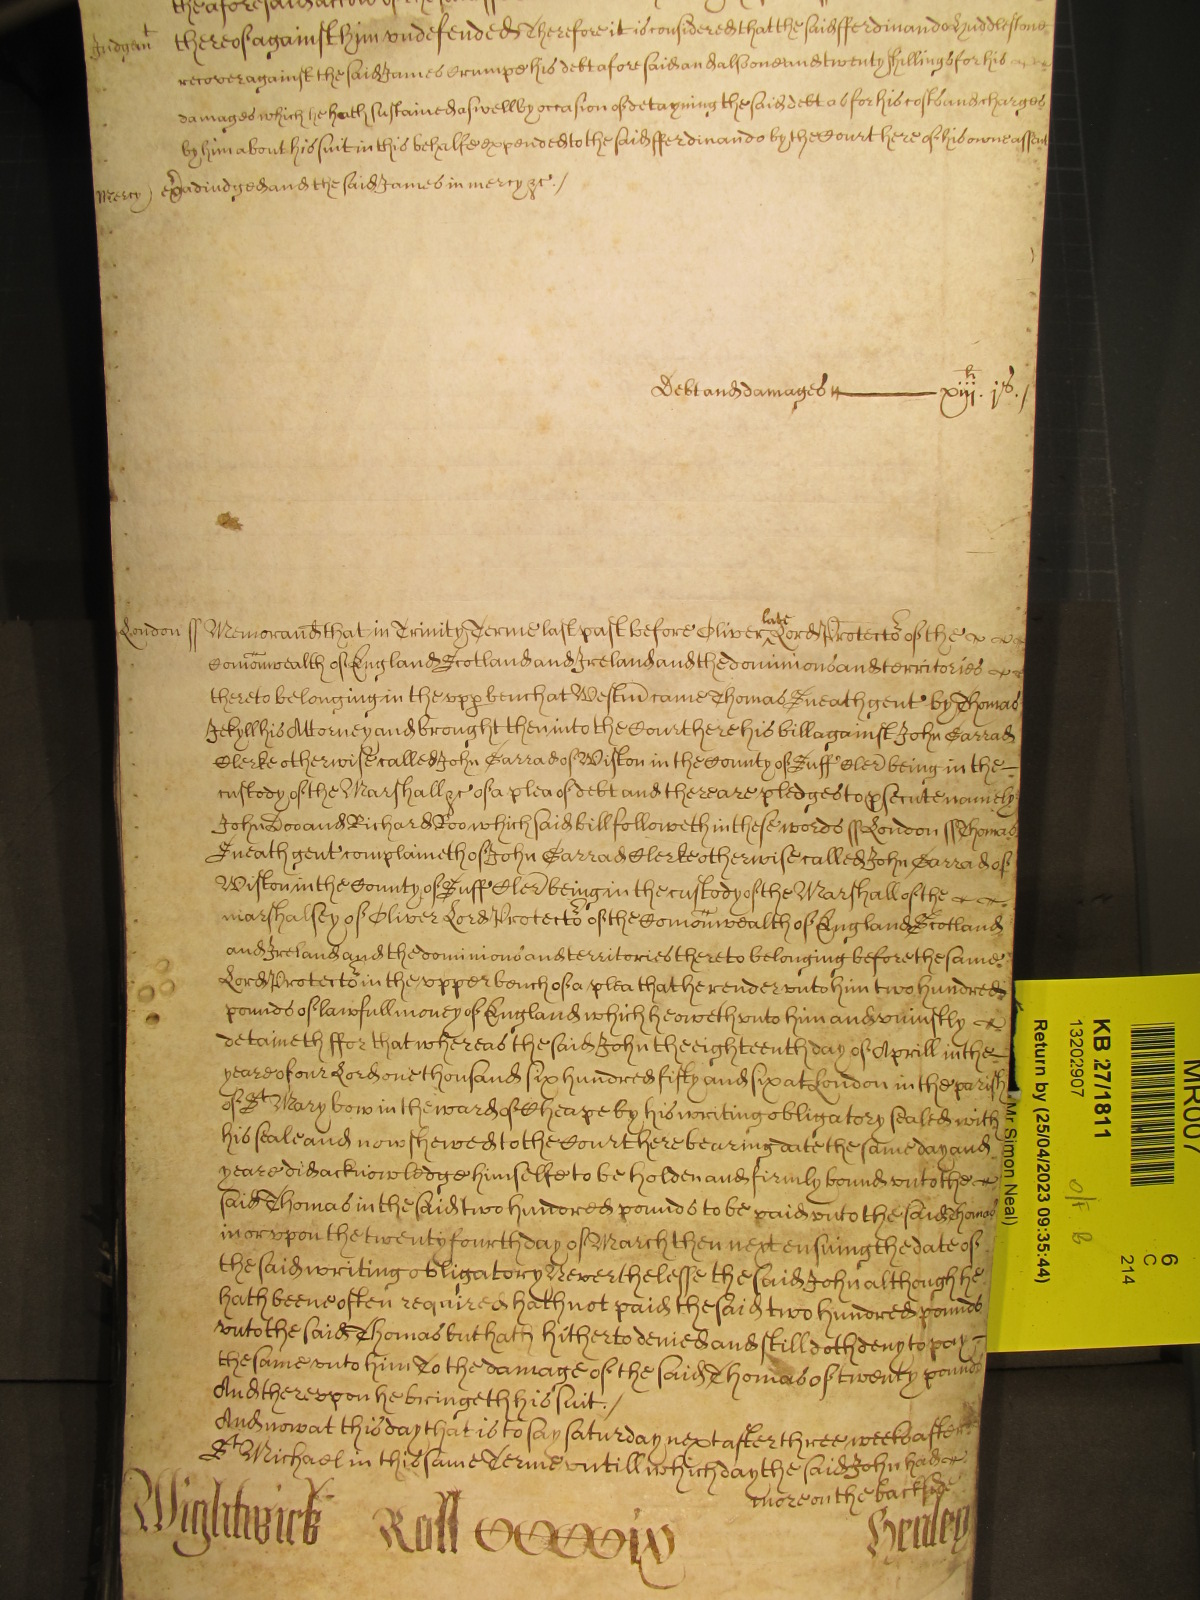 the aforesaid accion of the said
Judgemt thereof against him undefended Therefore it is considered that the said fferdinando Huddlestone
recover against the said James Crumpe his debt aforesaid and alsoe one and twenty shillings for his
damages which he hath sustained aswell by occasion of detayning the said debt as for his costs and charges
by him about his suit in this behalfe expended to the said fferdinando by the Court here of his owne assent
Mercy) adiudged and the said James in mercy &c./
Debt and damages xiij li. js./
London ss Memorand that in Trinity Terme last past before Oliver late Lord Protector of the
Comonwealth of England Scotland and Ireland and the dominions and territories
thereto belonging in the upp bench at Westm came Thomas Sneath gent by Thomas
Jekyll his Attorney and brought then into the Court here his bill against John Carrad
Clerke otherwise called John Carrad of Wiston in the County of Suff Cler being in the
custody of the Marshall &c of a plea of debt and there are pledges to psecute namely
John Doo and Richard Roo which said bill followeth in these words ss London ss Thomas
Sneath gent complaineth of John Carrad Clerke otherwise called John Carrad of
Wiston in the County of Suff Cler being in the custody of the Marshall of the
marshalsey of Oliver Lord Protector of the Comonwealth of England Scotland
and Ireland and the dominions and territories thereto belonging before the same
Lord Protector in the upper bench of a plea that he render unto him two hundred
pounds of lawfull money of England which he oweth unto him and uniustly
detaineth ffor that whereas the said John the eighteenth day of Aprill in the
yeare of our Lord one thousand six hundred fifty and six at London in the parish
of St Mary bow in the ward of Cheape by his writing obligatory sealed with
his seale and now shewed to the Court here bearing date the same day and
yeare did acknowledge himselfe to be holden and firmly bound unto the
said Thomas in the said two hundred pounds to be paid unto the said Thomas
in or upon the twenty fourth day of March then next ensuing the date of
the said writing obligatory Neverthelesse the said John although he
hath beene often required hath not paid the said two hundred pounds
unto the said Thomas but hath hitherto denied and still doth deny to pay
the same unto him To the damage of the said Thomas of twenty pounds
And thereupon he bringeth his suit./
And now at this day that is to say saturday next after three weeks after
St Michael in this same Terme untill which day the said John had
more on the backside
Wightwick Roll CCCCiiij Henley
MR007
6
C
214
KB 27/1811
13202907
o/f B
Return by (25/04/2023 09:35:44)
Mr Simon Neal)